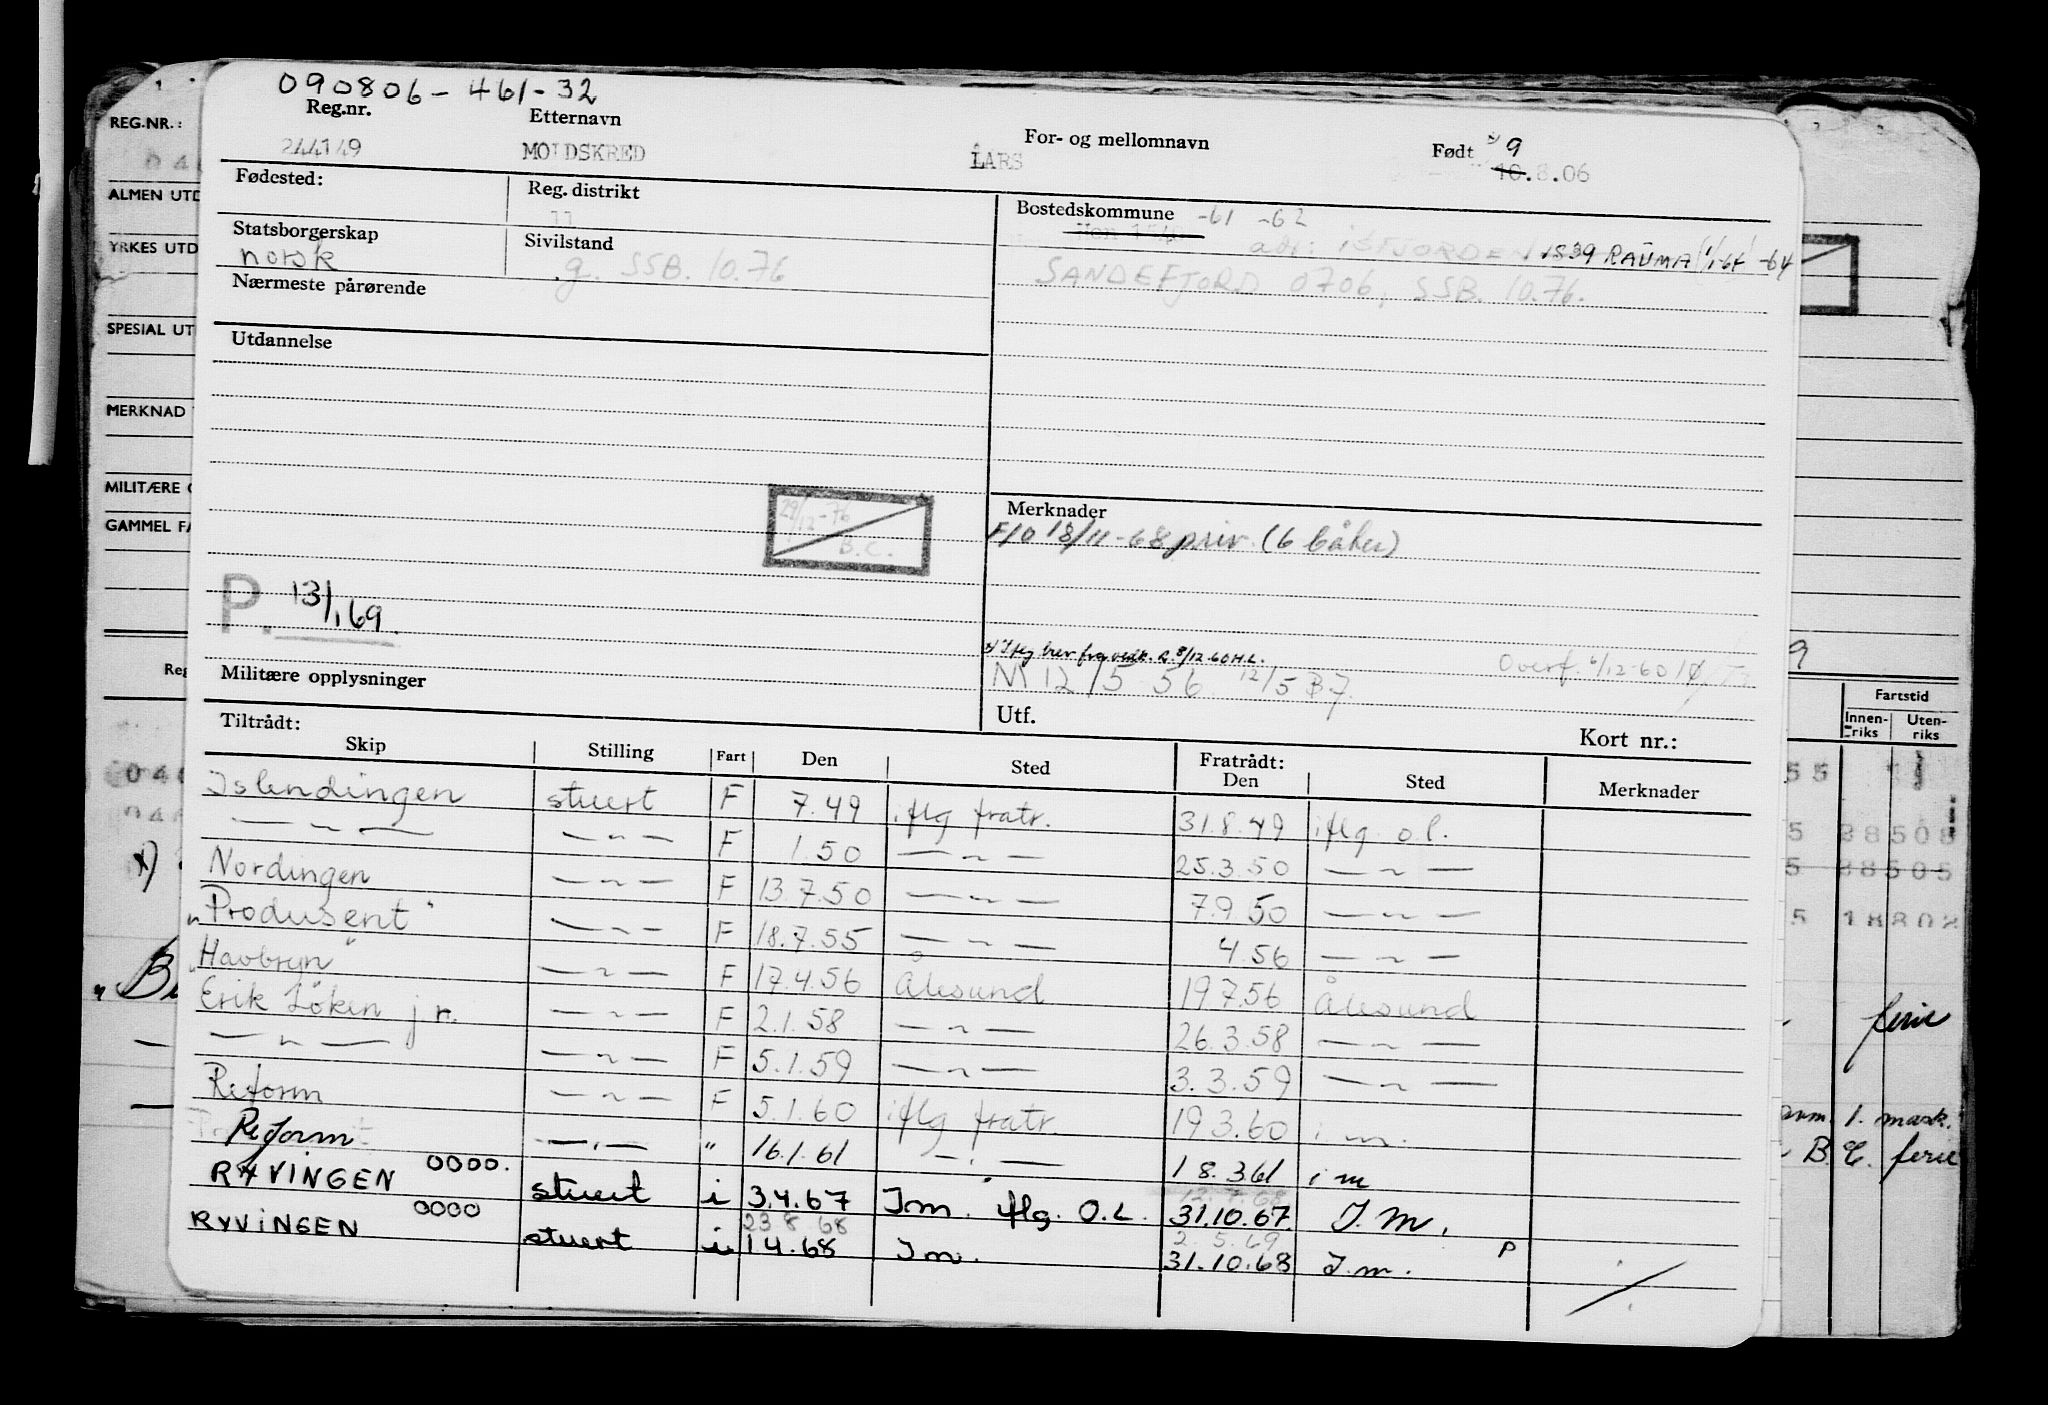 090806-461-32
Reg.nr. Etternavn For- og mellomnavn Født *) 9
244149 MOLDSKRED LARS 10.8.06
Fødested: Reg. distrikt Bostedskommune -61 -62
11 adr: ISFJORDEN 1539 RAUMA (1/1-64) -64
Statsborgerskap Sivilstand
norsk g. SSB. 10.76 SANDEFJORD 0706, SSB. 10.76.
Nærmeste pårørende
Utdannelse
29/12-76
B.C.
Merknader
F/O 18/11-68 priv. (6 båter)
P. 13/1 69
*) Iflg brev fra vedk. 8/12-60 H.L.
Overf. 6/12-60
M 12/5 56 12/5 B7.
Militære opplysninger Utf. Kort nr.:
Tiltrådt: Fratrådt:
Skip Stilling Fart Den Sted Den Sted Merknader
Islendingen stuert F 7.49 iflg fratr. 31.8.49 iflg o.l.
— " — — " — F 1.50 — " — 25.3.50 — " —
Nordingen — " — F 13.7.50 — " — 7.9.50 — " —
"Produsent" — " — F 18.7.55 — " — 4.56 — " —
"Havbryn" — " — F 17.4.56 Ålesund 19.7.56 Ålesund
Erik Løken jr. — " — F 2.1.58 — " — 26.3.58 — " —
— " — — " — F 5.1.59 — " — 3.3.59 — " —
Reform — " — F 5.1.60 iflg fratr. 19.3.60 i m.
Reform — " — " 16.1.61 — " — 18.3.61 i m
RYVINGEN 0000. stuert i 3.4.67 I m. iflg. O.L. 31.10.67. I. M.
23 8 68 2.5.69
RYVINGEN 0000 stuert i 1.4.68 I m. 31.10.68 I. m. P
REG.NR.:
ALMEN UTD
YRKES UTD
SPESIAL UT
MERKNAD
MILITÆRE
GAMMEL FA
Reg
9
Fartstid
Innen-riks Uten-riks
55
5 38508
5 38505
5 18802
ferie
1. mask.
ferie